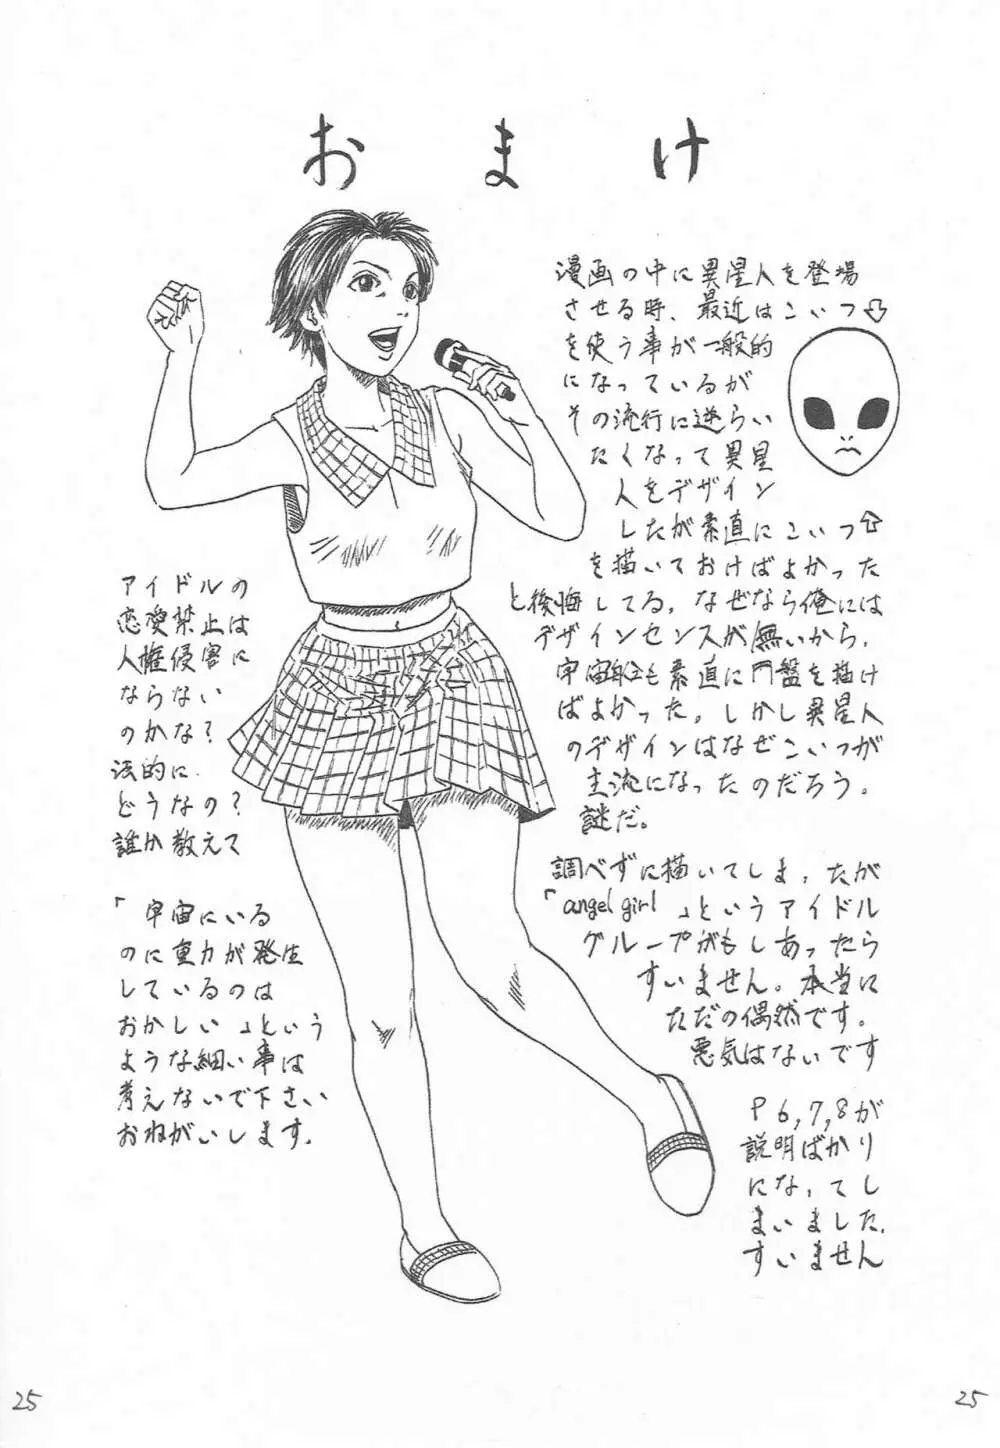 おまけ
漫画の中に異星人を登場
させる時、最近はこいつ⇩
を使う事が一般的
になっているが
その流行に逆らい
たくなって異星
人をデザイン
したが素直にこいつ⇧
を描いておけばよかった
と後悔してる。なぜなら俺には
デザインセンスが無いから。
宇宙船も素直に円盤を描け
ばよかった。しかし異星人
のデザインはなぜこいつが
主流になったのだろう。
謎だ。
調べずに描いてしまったが
「angel girl」というアイドル
グループがもしあったら
すいません。本当に
ただの偶然です。
悪気はないです
P 6,7,8が
説明ばかり
になってし
まいました。
すいません
アイドルの
恋愛禁止は
人権侵害に
ならない
のかな？
法的に
どうなの？
誰か教えて
「宇宙にいる
のに重力が発生
しているのは
おかしい」という
ような細い事は
考えないで下さい
おねがいします。
25
25